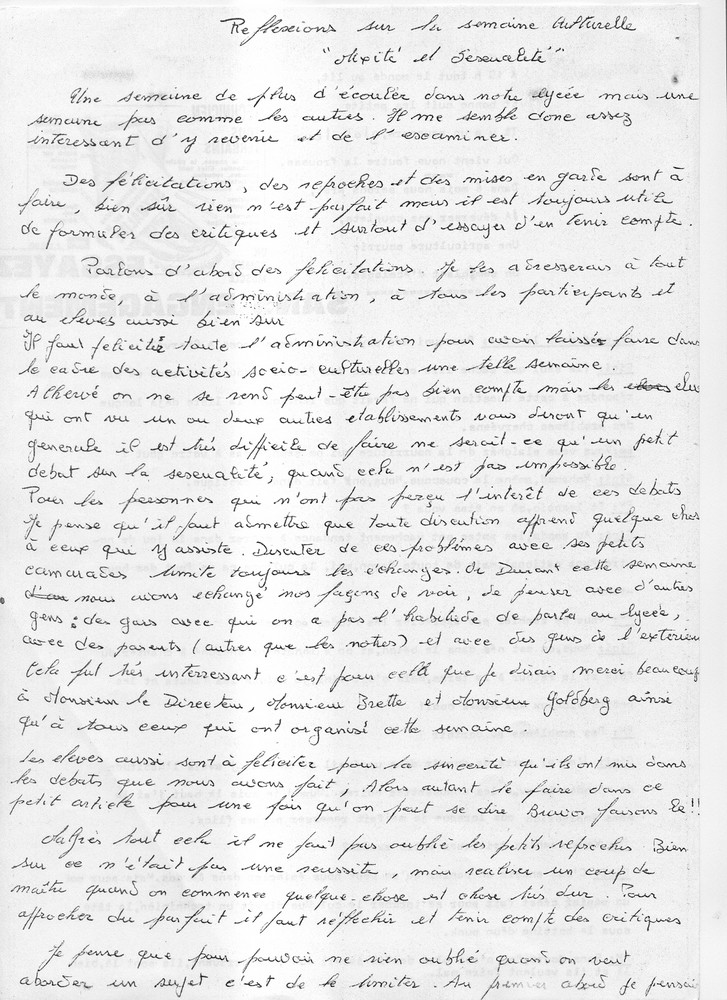 Reflexions sur la semaine Culturelle
"Mixité et Sexualité"
Une semaine de plus d'écoulée dans notre lycée mais une
semaine pas comme les autres. Il me semble donc assez
interessant d'y revenir et de l'examiner.
Des félicitations, des reproches et des mises en garde sont à
faire, bien sûr rien n'est parfait mais il est toujours utile
de formuler des critiques et surtout d'essayer d'en tenir compte.
Parlons d'abord des félicitations. Je les adresserais à tout
le monde, à l'administration, à tous les participants et
au eleves aussi bien sur
Il faut feliciter toute l'administration pour avoir laissé faire dans
le cadre des activités socio-culturelles une telle semaine.
A Hervé on ne se rend peut-être pas bien compte mais les
qui ont vu un ou deux autres etablissements vous diront qu'en
generale il est trés difficile de faire ne serait-ce qu'un petit
debat sur la sexualité, quand cela n'est pas impossible.
Pour les personnes qui n'ont pas perçu l'interêt de ces debats
Je pense qu'il faut admettre que toute discution apprend quelque chos
à ceux qui y assiste. Discuter de ces problèmes avec ses petits
camarades limite toujours les échanges. Durant cette semaine
nous avons echangé nos façons de voir, de penser avec d'autres
gens : des gars avec qui on a pas l'habitude de parler au lycée,
avec des parents (autres que les notres) et avec des gens de l'exterieu
Cela fut trés interressant c'est pour cela que je dirais merci beaucoup
à Monsieur le Directeur, Monsieur Brette et Monsieur Goldberg ainsi
qu'à tous ceux qui ont organisé cette semaine.
Les eleves aussi sont à feliciter pour la sincerité qu'ils ont mis dans
les debats que nous avons fait ; Alors autant le faire dans ce
petit article pour une fois qu'on peut se dire Bravos faisons le !!
Malgrés tout cela il ne faut pas oublié les petits reproches Bien
sur ce n'était pas une reussite, mais realiser un coup de
maître quand on commence quelque chose est chose trés dur Pour
approcher du parfait il faut réflechir et tenir compte des critiques
Je pense que pour pouvoir ne rien oublié quand on veut
aborder un sujet c'est de le limiter. Au premier abord je pensai